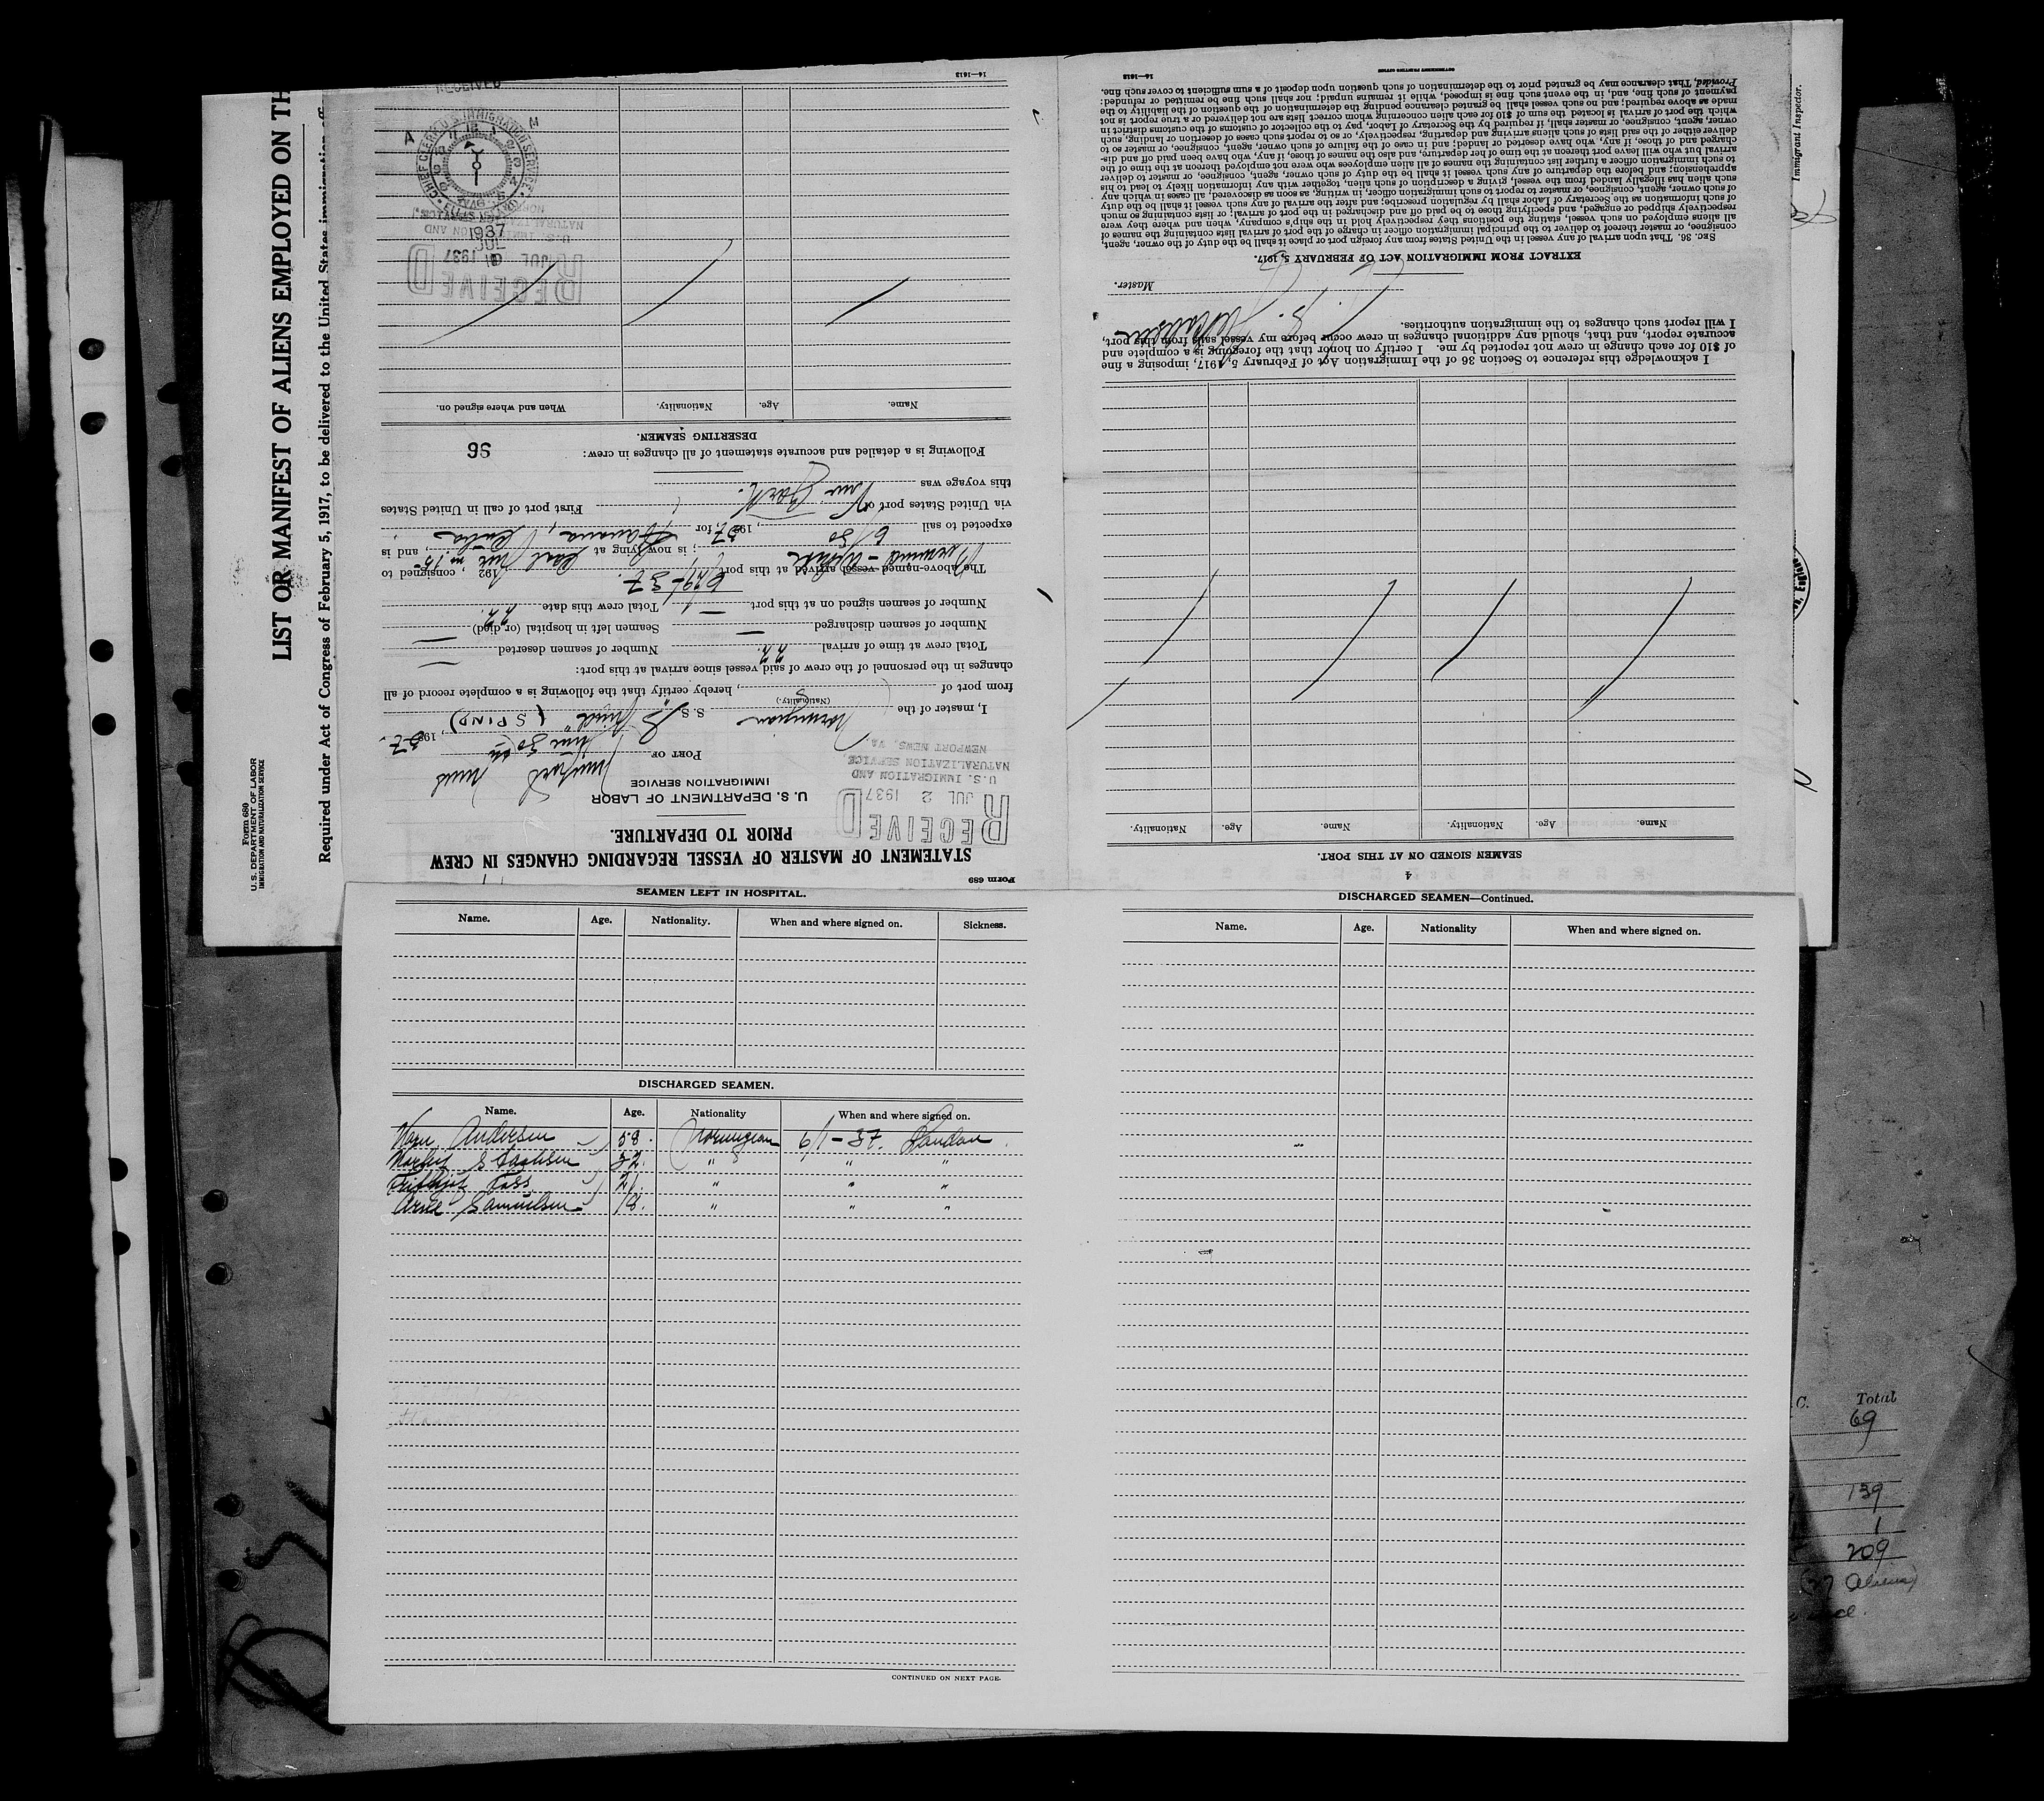 Form 680
U. S. DEPARTMENT OF LABOR
IMMIGRATION AND NATURALIZATION SERVICE
LIST OR MANIFEST OF ALIENS EMPLOYED ON TH
Required under Act of Congress of February 5, 1917, to be delivered to the United States immigration off
Form 689
STATEMENT OF MASTER OF VESSEL REGARDING CHANGES IN CREW
PRIOR TO DEPARTURE.
U. S. DEPARTMENT OF LABOR
IMMIGRATION SERVICE
RECEIVED
JUL 2 1937
U. S. IMMIGRATION AND
NATURALIZATION SERVICE
NEWPORT NEWS, VA.
PORT OF Newport News
June 30th, 1937.
I, master of the Norwegian S. S. "Spind" (SPIND)
(Nationality.)
from port of , hereby certify that the following is a complete record of all
changes in the personnel of the crew of said vessel since arrival at this port:
Total crew at time of arrival 22. Number of seamen deserted —
Number of seamen discharged — Seamen left in hospital (or died) —
Number of seamen signed on at this port — Total crew this date 22.
The above-named vessel arrived at this port 6/29-37. 192 , consigned to
; is now lying at , and is
expected to sail 6/30 , 1937. for Havana, Cuba
via United States port of First port of call in United States
this voyage was New York.
Following is a detailed and accurate statement of all changes in crew:
96
DESERTING SEAMEN.
Name. Age. Nationality. When and where signed on.
RECEIVED
JUL 1937
U. S. IMMIGRATION AND
CHIEF CLERK U. S. IMMIGRATION SERVICE
1937
JUL
RECEIVED
14—1613
4
SEAMEN SIGNED ON AT THIS PORT.
Name. Age. Nationality. Name. Age. Nationality.
I acknowledge this reference to Section 36 of the Immigration Act of February 5, 1917, imposing a fine
of $10 for each change in crew not reported by me. I certify on honor that the foregoing is a complete and
accurate report, and that, should any additional changes in crew occur before my vessel sails from this port,
I will report such changes to the immigration authorities.
Master.
EXTRACT FROM IMMIGRATION ACT OF FEBRUARY 5, 1917.
SEC. 36. That upon arrival of any vessel in the United States from any foreign port or place it shall be the duty of the owner, agent,
consignee, or master thereof to deliver to the principal immigration officer in charge of the port of arrival lists containing the names of
all aliens employed on such vessel, stating the positions they respectively hold in the ship's company, when and where they were
respectively shipped or engaged, and specifying those to be paid off and discharged in the port of arrival; or lists containing so much
of such information as the Secretary of Labor shall by regulation prescribe; and after the arrival of any such vessel it shall be the duty
of such owner, agent, consignee, or master to report to such immigration officer, in writing, as soon as discovered, all cases in which any
such alien has illegally landed from the vessel, giving a description of such alien, together with any information likely to lead to his
apprehension; and before the departure of any such vessel it shall be the duty of such owner, agent, consignee, or master to deliver
to such immigration officer a further list containing the names of all alien employees who were not employed thereon at the time of the
arrival but who will leave port thereon at the time of her departure, and also the names of those, if any, who have been paid off and dis-
charged and of those, if any, who have deserted or landed; and in case of the failure of such owner, agent, consignee, or master to
deliver either of the said lists of such aliens arriving and departing, respectively, or so to report such cases of desertion or landing, such
owner, agent, consignee, or master shall, if required by the Secretary of Labor, pay to the collector of customs of the customs district in
which the port of arrival is located the sum of $10 for each alien concerning whom correct lists are not delivered or a true report is not
made as above required; and no such vessel shall be granted clearance pending the determination of the question of the liability to the
payment of such fine, and, in the event such fine is imposed, while it remains unpaid; nor shall such fine be remitted or refunded:
Provided, That clearance may be granted prior to the determination of such question upon deposit of a sum sufficient to cover such fine.
GOVERNMENT PRINTING OFFICE
14—1613
Immigrant Inspector.
SEAMEN LEFT IN HOSPITAL.
Name. Age. Nationality. When and where signed on. Sickness.
DISCHARGED SEAMEN.
Name. Age. Nationality When and where signed on.
Andersen 58. Norwegian 6/1-37. London.
32. " " "
Foss 21. " " "
Arne Samuelsen 18. " " "
CONTINUED ON NEXT PAGE.
DISCHARGED SEAMEN—Continued.
Name. Age. Nationality When and where signed on.
C. Total
69
139
1
209